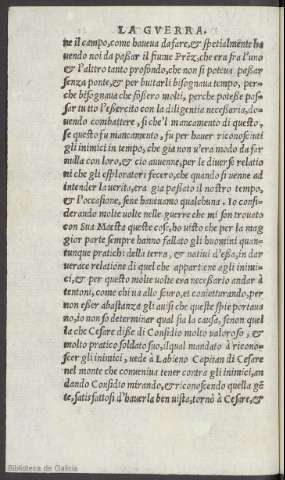 LA GVERRA.
ne il campo, come haueua da fare, & spetialmente ha
uendo noi da passar il fiume Prôz, che era fra l'uno
e l'altro tanto profondo, che non si poteua passar
senza ponte, & per buttarli bisognaua tempo, per-
che bisognaua che fossero molti, perche potesse pas-
sar tutto l'essercito con la diligentia necessaria, do-
uendo combattere, si che'l mancamento di questo,
se questo fu mancamento, fu per hauer riconosciuti
gli inimici in tempo, che gia non u'era modo da far
nulla con loro, & cio auuenne, per le diuerse relatio
ni che gli esploratori fecero, che quando si uenne ad
intender la uerità, era gia passato il nostro tempo,
& l'occasione, se ne haueuamo qualchuna. Io consi-
derando molte uolte nelle guerre che mi son trouato
con Sua Maestà queste cose, ho uisto che per la mag
gior parte sempre hanno fallato gli huomini quan-
tunque pratichi della terra, & natiui d'essa, in dar
uerace relatione di quel che appartiene agli inimi-
ci, & per questo molte uolte era necessario andar à
tentoni, come chi ua allo scuro, et conietturando, per
non esser abastanza gli auisi che queste spie portaua
no, io non so determinar qual sia la causa, se non quel
la che Cesare disse di Considio molto ualoroso, &
molto pratico soldato suo, il qual mandato à ricono-
scer gli inimici, uede à Labieno Capitan di Cesare
nel monte che conueniua tener contra gli inimici, an
dando Considio mirando, & riconoscendo quella gẽ
te, satisfattosi d'hauerla ben uista, tornò à Cesare, &
Biblioteca de Galicia